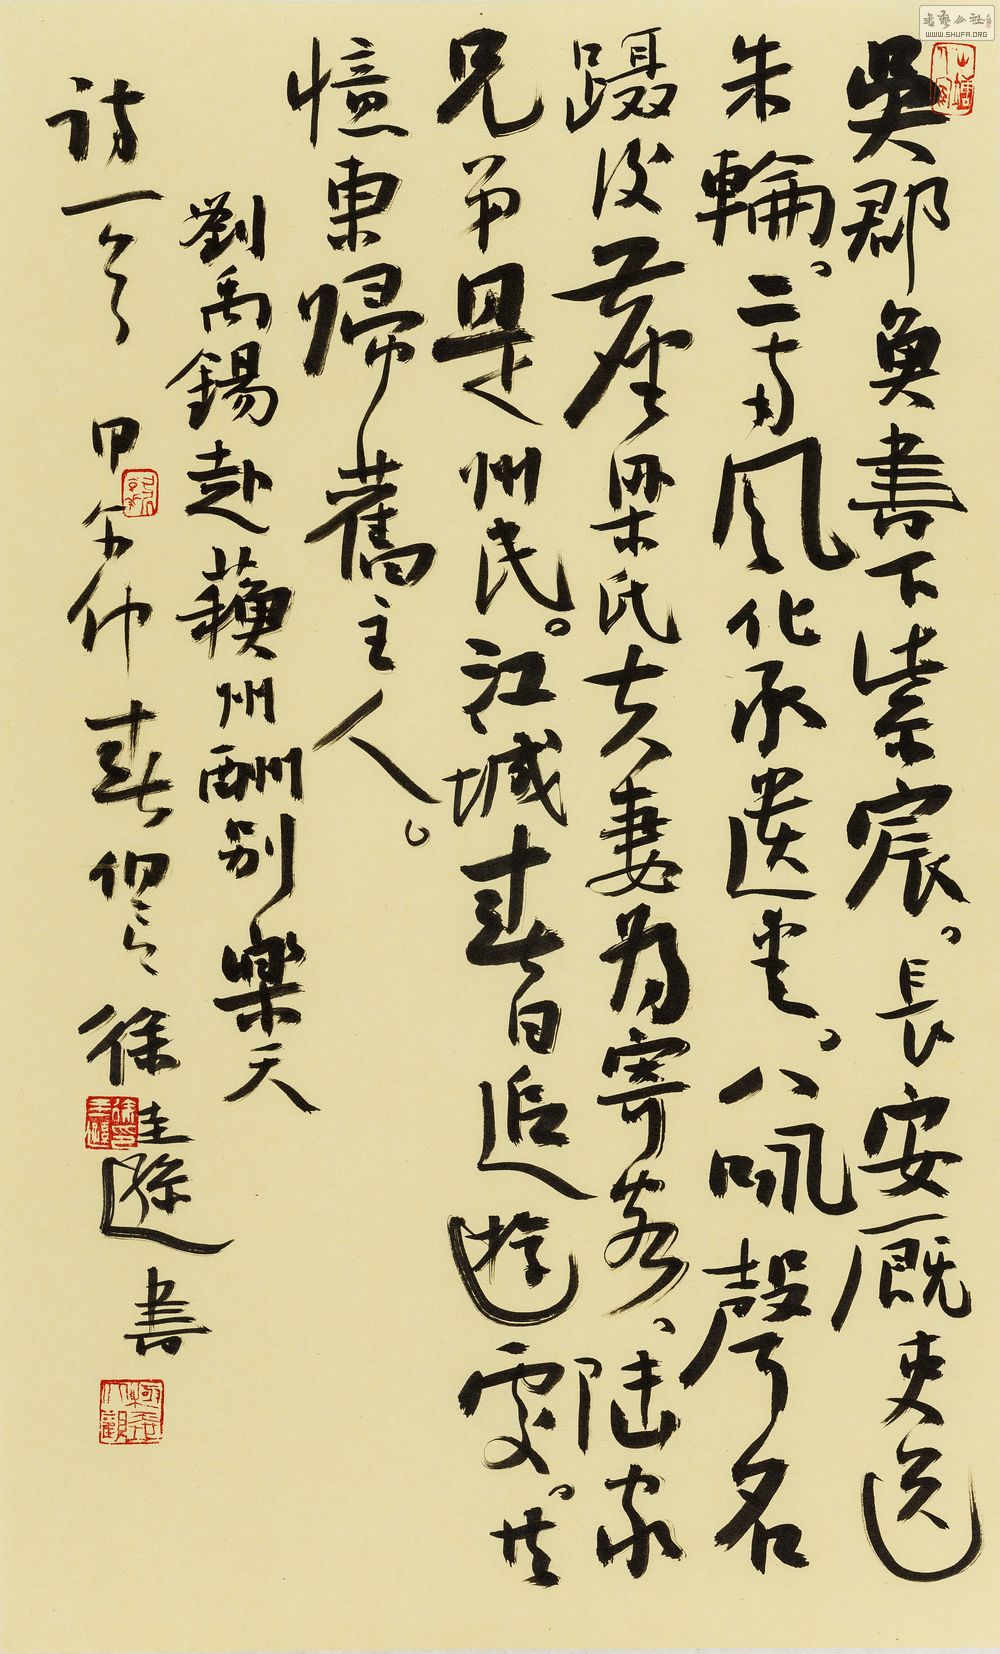 吳郡魚書下紫宸。長安厩吏送
朱輪。二南風化承遺愛。八咏聲名
蹑後塵梁氏夫妻為寄客、陸家
兄弟是州民。江城春日追遊處。共
憶東歸舊主人。
劉禹錫赴蘇州酬别樂天
詩一首 甲午仲春 徐圭遜書
書藝公社
WWW.SHUFA.ORG